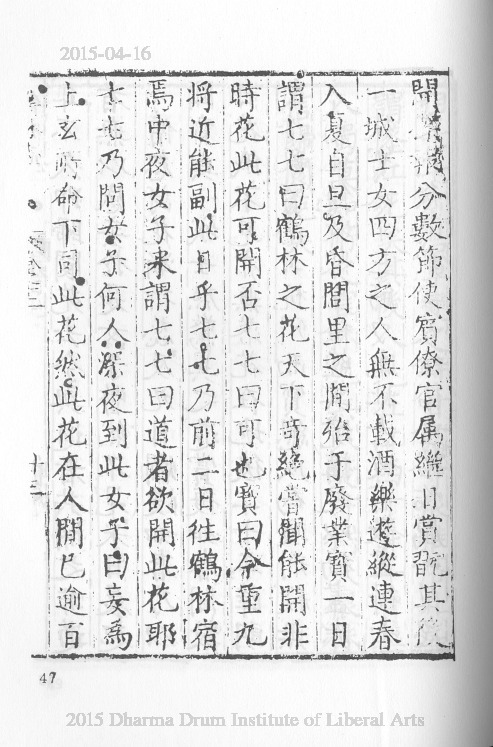 2015-04-16
開分數節使賓僚官属繼日賞翫其
一城士女四方之人無不載酒樂遊縱連春
入夏自旦及昏閭里之間殆于廢業寳一日
謂七七曰鶴林之花天下竒絶嘗聞能開非
時花此花可開否七七曰可也寳曰今重九
将近能副此日乎七七乃前二日往鶴林宿
焉中夜女子来謂七七曰道者欲開此花耶
七七乃問女子何人深夜到此女子曰妾為
上玄所命下司此花然此花在人間已逾百
十三
47
2015 Dharma Drum Institute of Liberal Arts